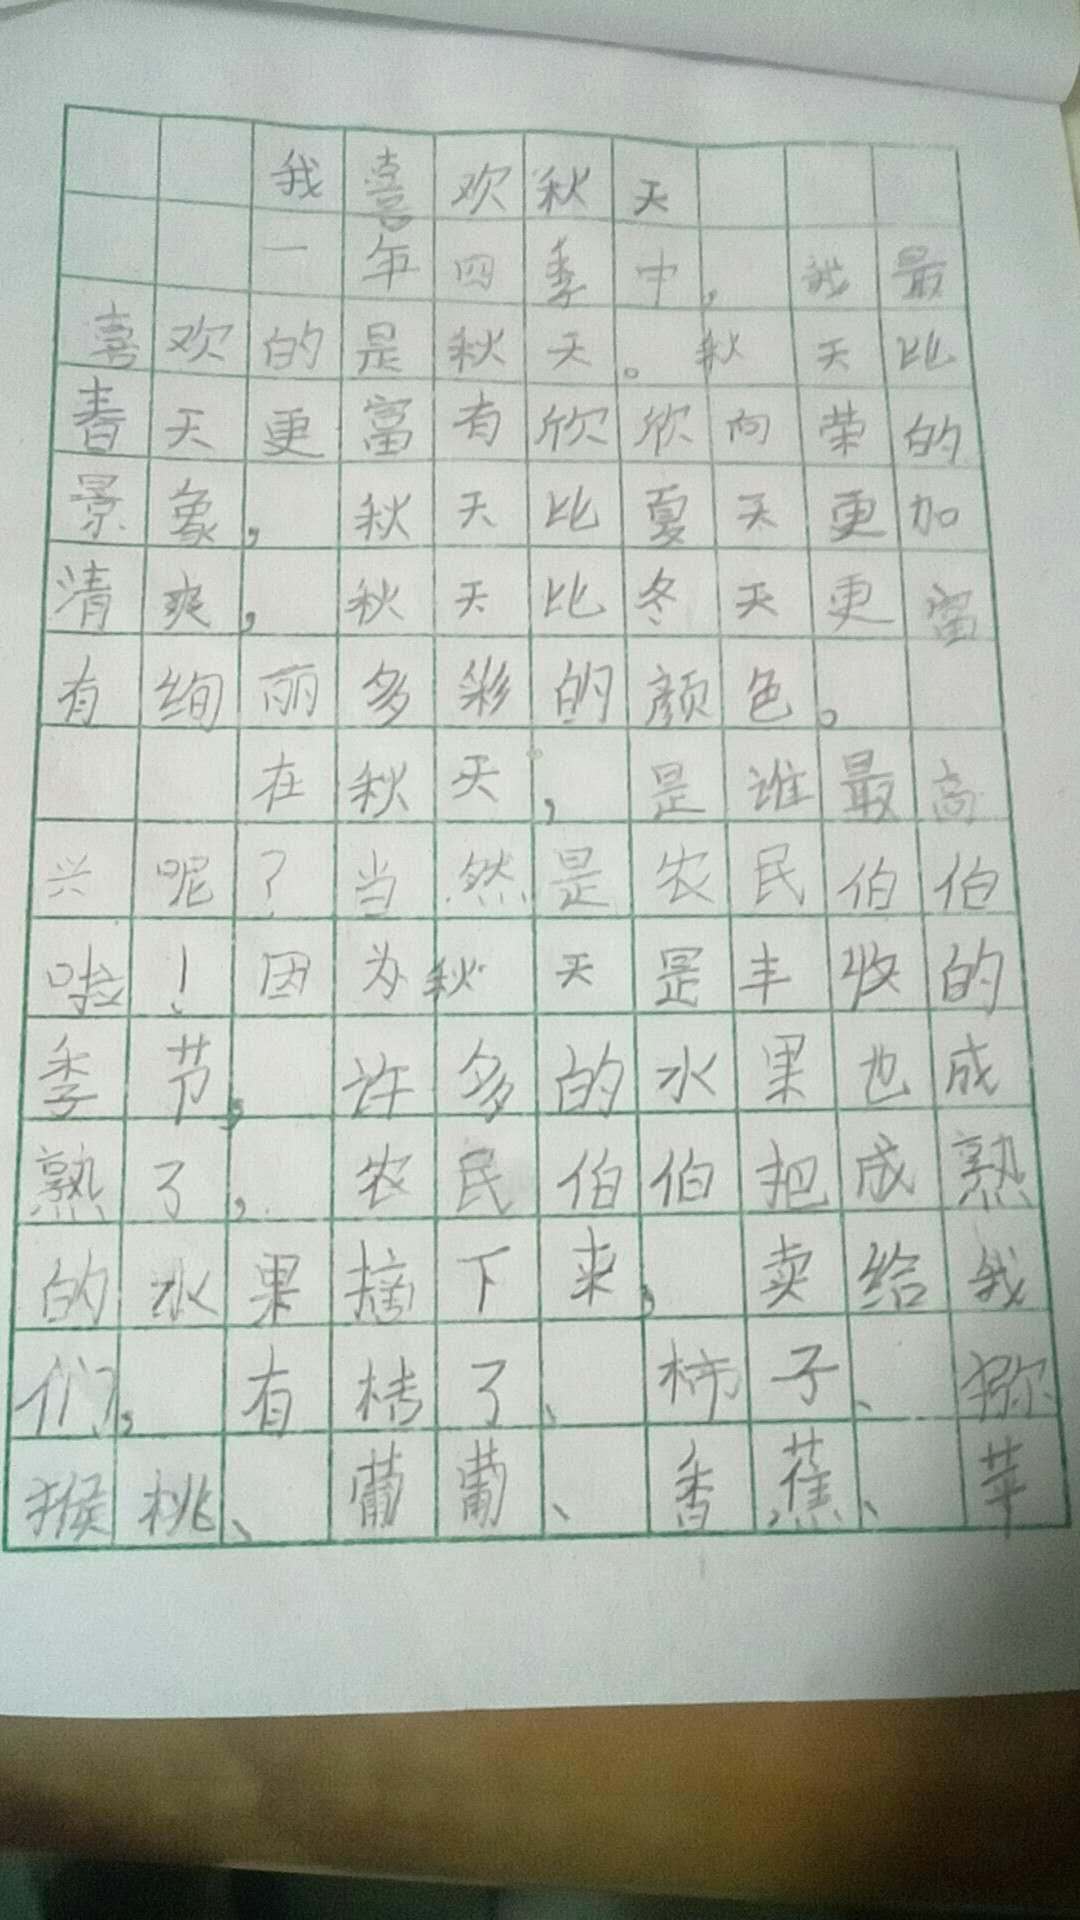 我喜欢秋天
一年四季中，我最
喜欢的是秋天。秋天比
春天更富有欣欣向荣的
景象，秋天比夏天更加
清爽，秋天比冬天更富
有绚丽多彩的颜色。
在秋天，是谁最高
兴呢？当然是农民伯伯
啦！因为秋天是丰收的
季节，许多的水果也成
熟了，农民伯伯把成熟
的水果摘下来，卖给我
们，有桔了、柿子、猕
猴桃、葡萄、香蕉、苹